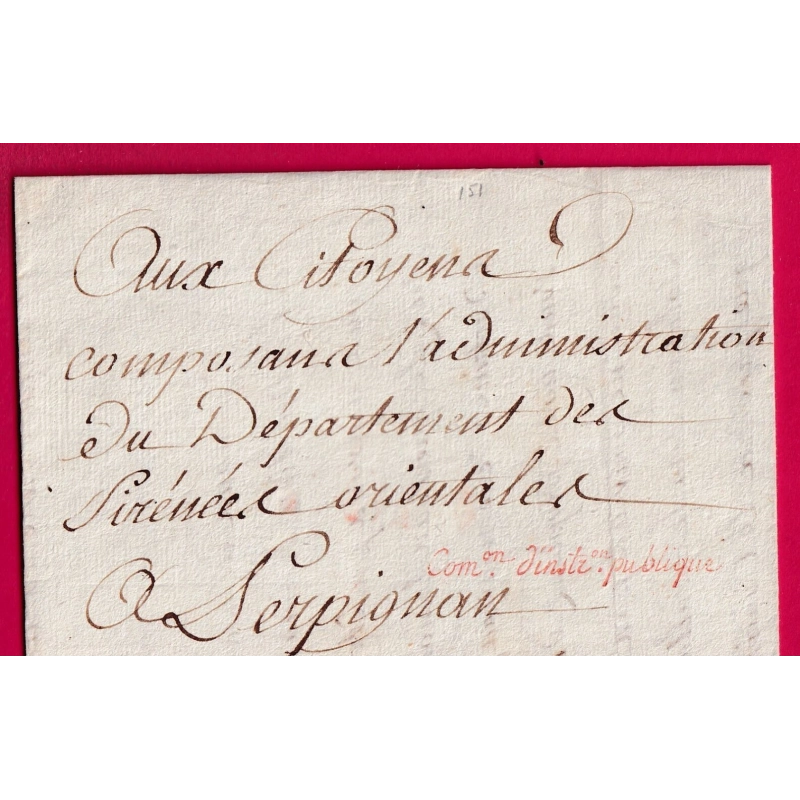 151
Aux Citoyens
composans l'administration
du Département des
Pirénées orientales
Com.on d'instr.on publique
A Perpignan